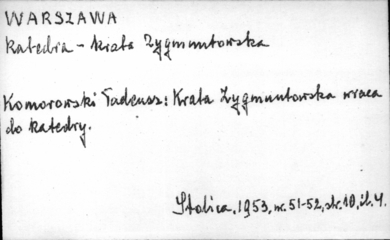 WARSZAWA
Katedra - krata Zygmuntowska
Komorowski Tadeusz: Krata Zygmuntowska wraca
do katedry.
Stolica, 1953, nr. 51-52, str. 10, il. 4.